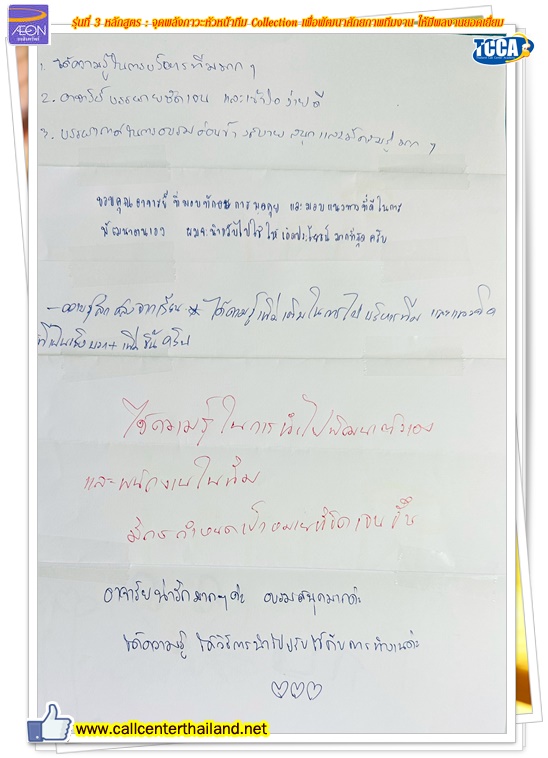 รุ่นที่ 3 หลักสูตร : จุดพลังภาวะหัวหน้าทีม Collection เพื่อพัฒนาศักยภาพทีมงาน ให้มีผลงานยอดเยี่ยม
AEON
TCCA
1. ได้ความรู้ในการบริหารทีมมากๆ
2. อาจารย์บรรยายชัดเจน และเข้าใจง่ายดี
3. บรรยากาศในการอบรมค่อนข้างสบาย สนุก และได้ความรู้มากๆ
ขอขอบคุณอาจารย์ที่มอบทักษะการพูดคุย และมอบแนวทางที่ดีในการ
พัฒนาตนเอง ผมจะนำกลับไปใช้ให้เกิดประโยชน์มากที่สุดครับ
- ความรู้สึกหลังจากเรียน ได้ความรู้เพิ่มเติมในการไปบริหารทีม และแนวคิด
ที่เป็นเชิงบวก+เพิ่มขึ้นครับ
ได้ความรู้ในการนำไปพัฒนาตัวเอง
และพนักงานในทีม
มีการกำหนดเป้าหมายที่ชัดเจนขึ้น
อาจารย์น่ารักมากๆค่ะ อบรมสนุกมากค่ะ
ได้ความรู้ ได้วิธีการนำไปปรับใช้กับการทำงานค่ะ
♡♡♡
www.callcenterthailand.net